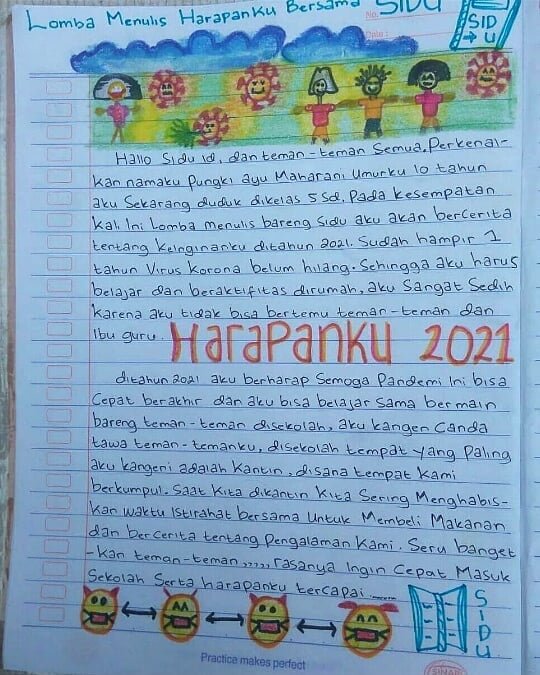 Lomba Menulis Harapanku Bersama SIDU
No.
Date :
SID
U
Hallo Sidu id, dan teman-teman Semua. Perkenal-
kan namaku Pungki ayu Maharani Umurku 10 tahun
aku Sekarang duduk dikelas 5 Sd. Pada kesempatan
kali Ini Lomba menulis bareng Sidu aku akan bercerita
tentang keinginanku ditahun 2021. Sudah hampir 1
tahun Virus korona belum hilang. Sehingga aku harus
belajar dan beraktifitas dirumah, aku Sangat Sedih
karena aku tidak bisa bertemu teman-teman dan
Ibu guru.
HaraPanKU 2021
ditahun 2021 aku berharap Semoga Pandemi Ini bisa
Cepat berakhir dan aku bisa belajar Sama bermain
bareng teman-teman disekolah, aku kangen Canda
tawa teman-temanku, disekolah tempat yang Paling
aku kangeni adalah Kantin, disana tempat Kami
berkumpul. Saat Kita dikantin Kita Sering Menghabis-
kan waktu Istirahat bersama Untuk Membeli Makanan
dan bercerita tentang Pengalaman Kami. Seru banget
-kan teman-teman ,,,,, rasanya Ingin Cepat Masuk
Sekolah Serta harapanku tercapai ......
SIDU
Practice makes perfect
SINAR